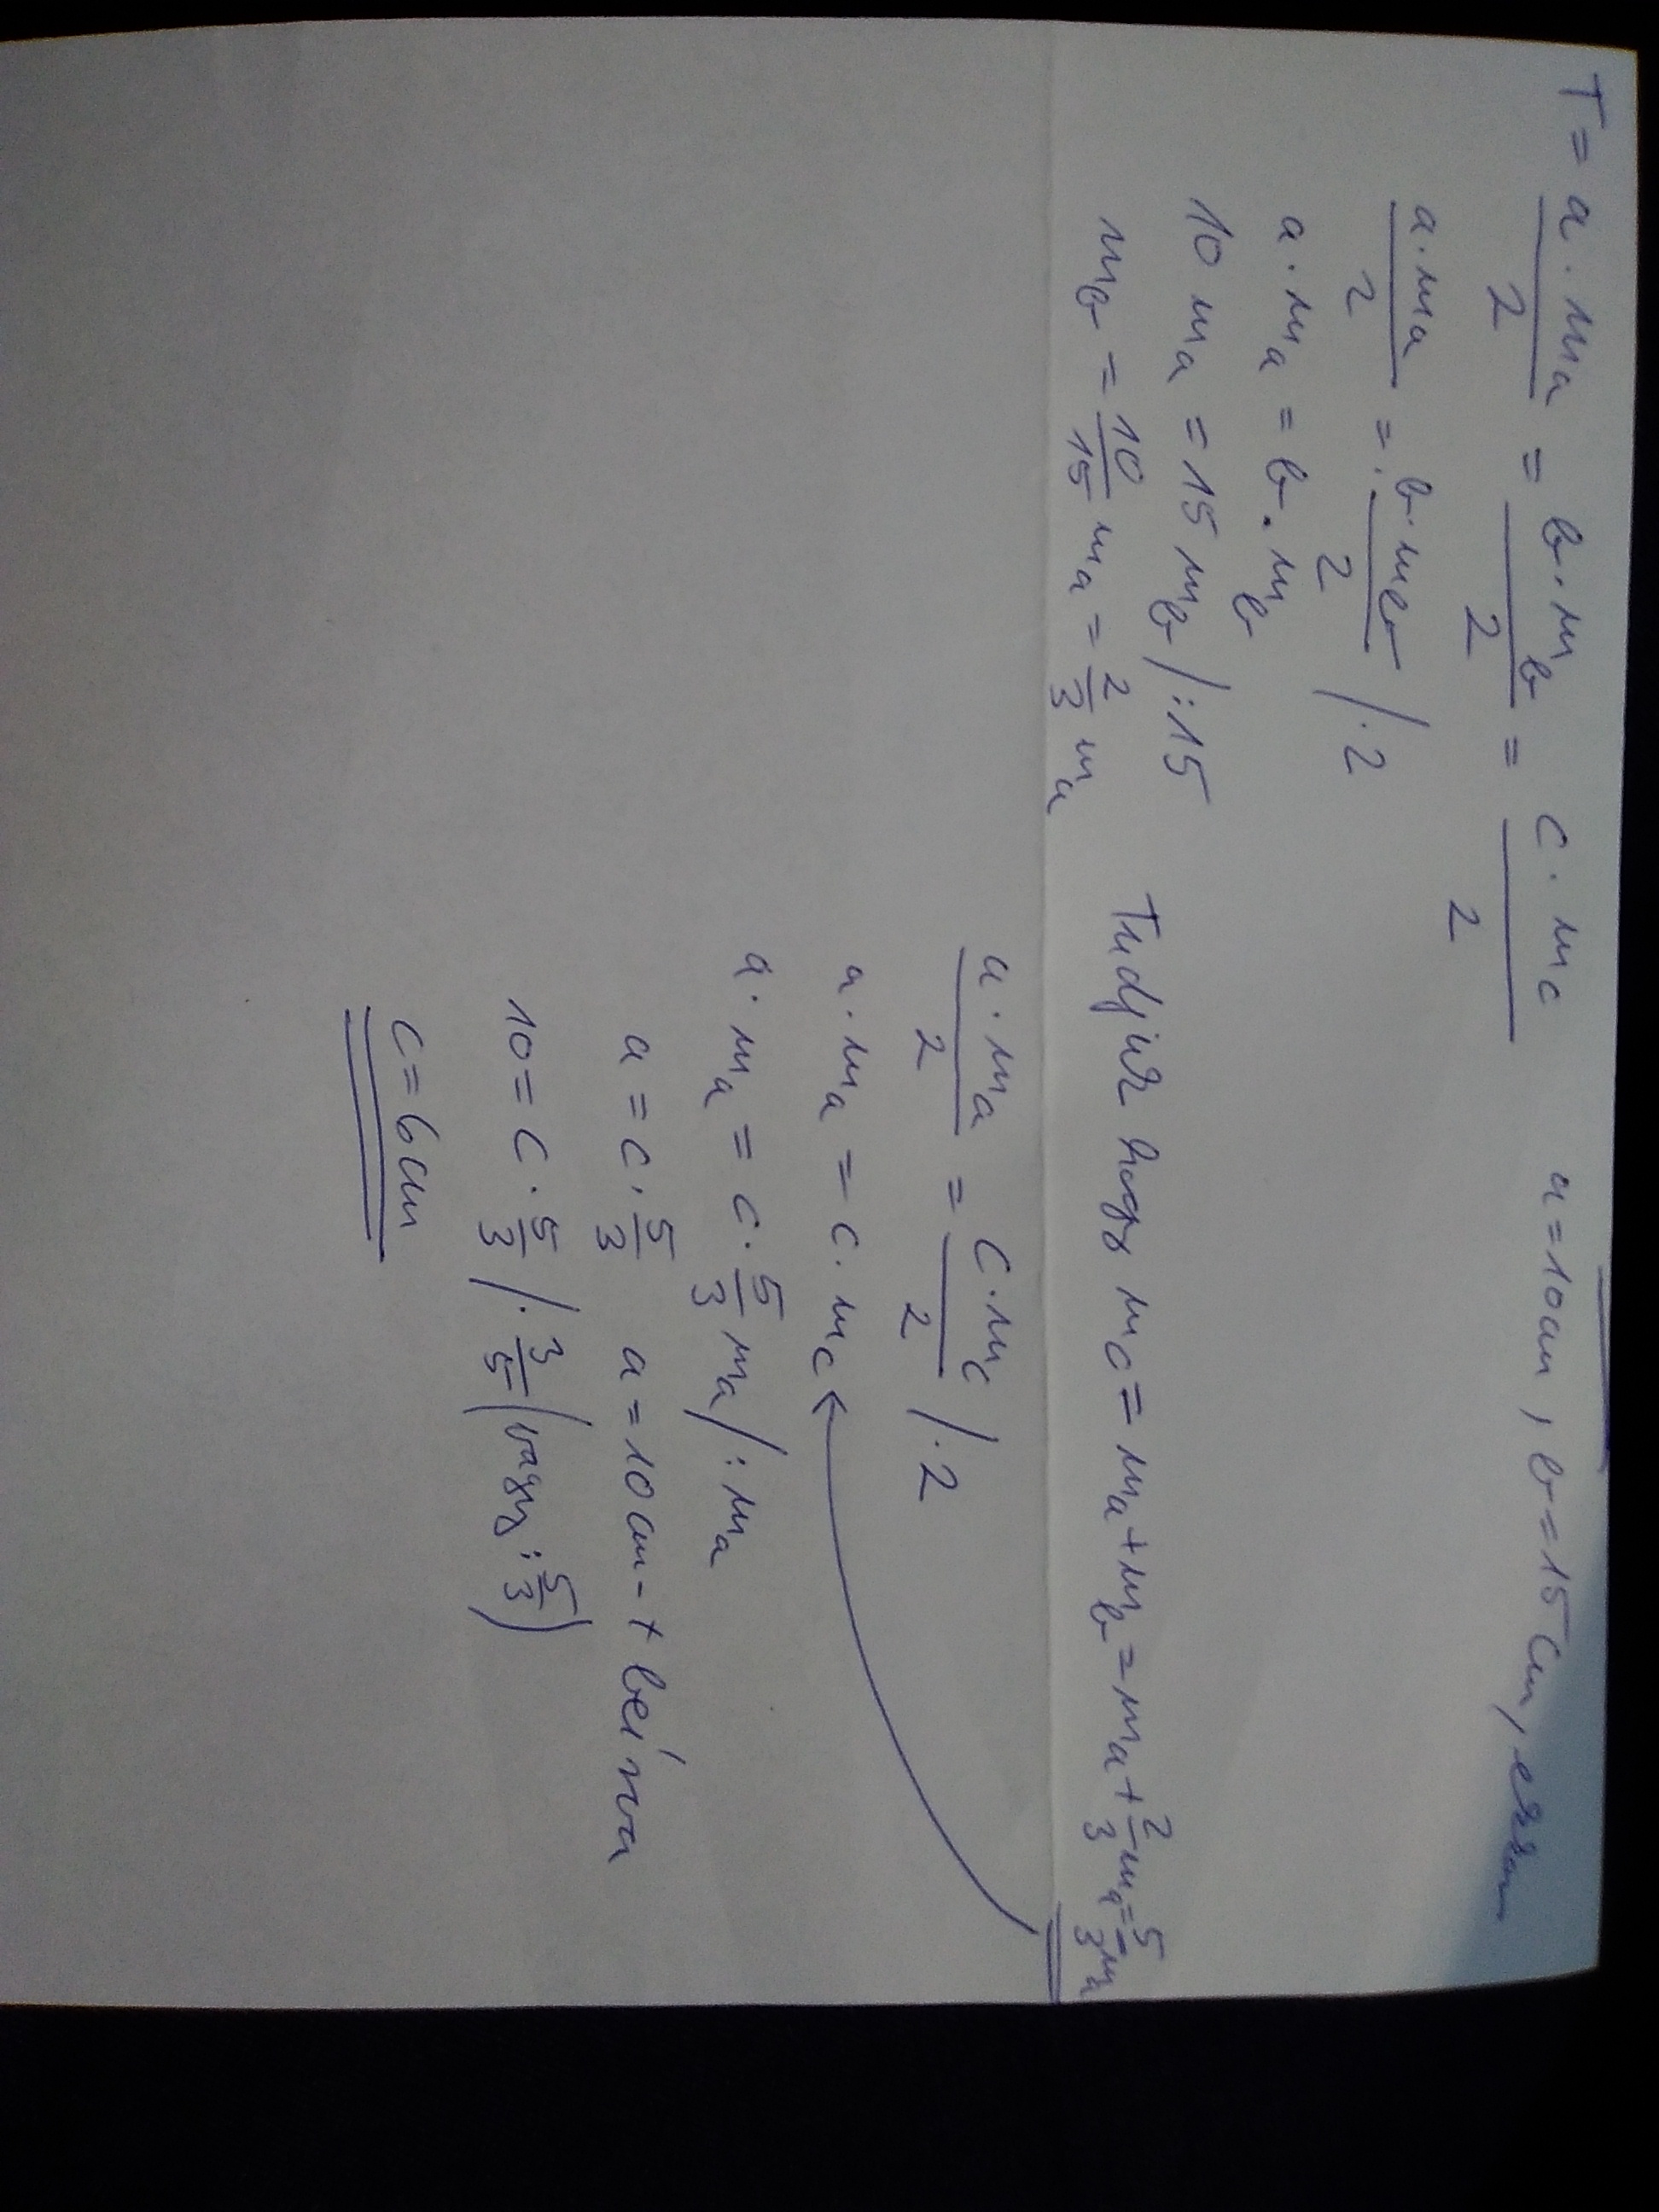 T = a·mₐ/2 = b·m_b/2 = c·m_c/2 a=10cm, b=15cm,
a·mₐ/2 = b·m_b/2 /·2
a·mₐ = b·m_b
10 mₐ = 15 m_b /:15
m_b = 10/15 mₐ = 2/3 mₐ Tudjuk hogy m_c = mₐ+m_b = mₐ+2/3 mₐ = 5/3 mₐ
a·mₐ/2 = c·m_c/2 /·2
a·mₐ = c·m_c
a·mₐ = c·5/3 mₐ /:mₐ
a = c·5/3 a=10cm-t beírva
10 = c·5/3 /·3/5 (vagy :5/3)
c=6cm